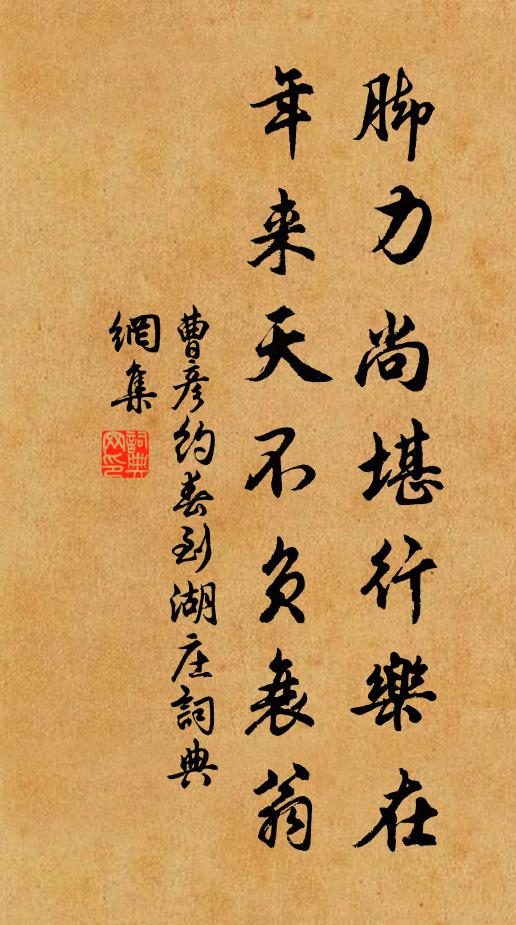 脚力尚堪行樂在
年来天不负衰翁
曹彦约春到湖庄詞典
網集
詞典网印